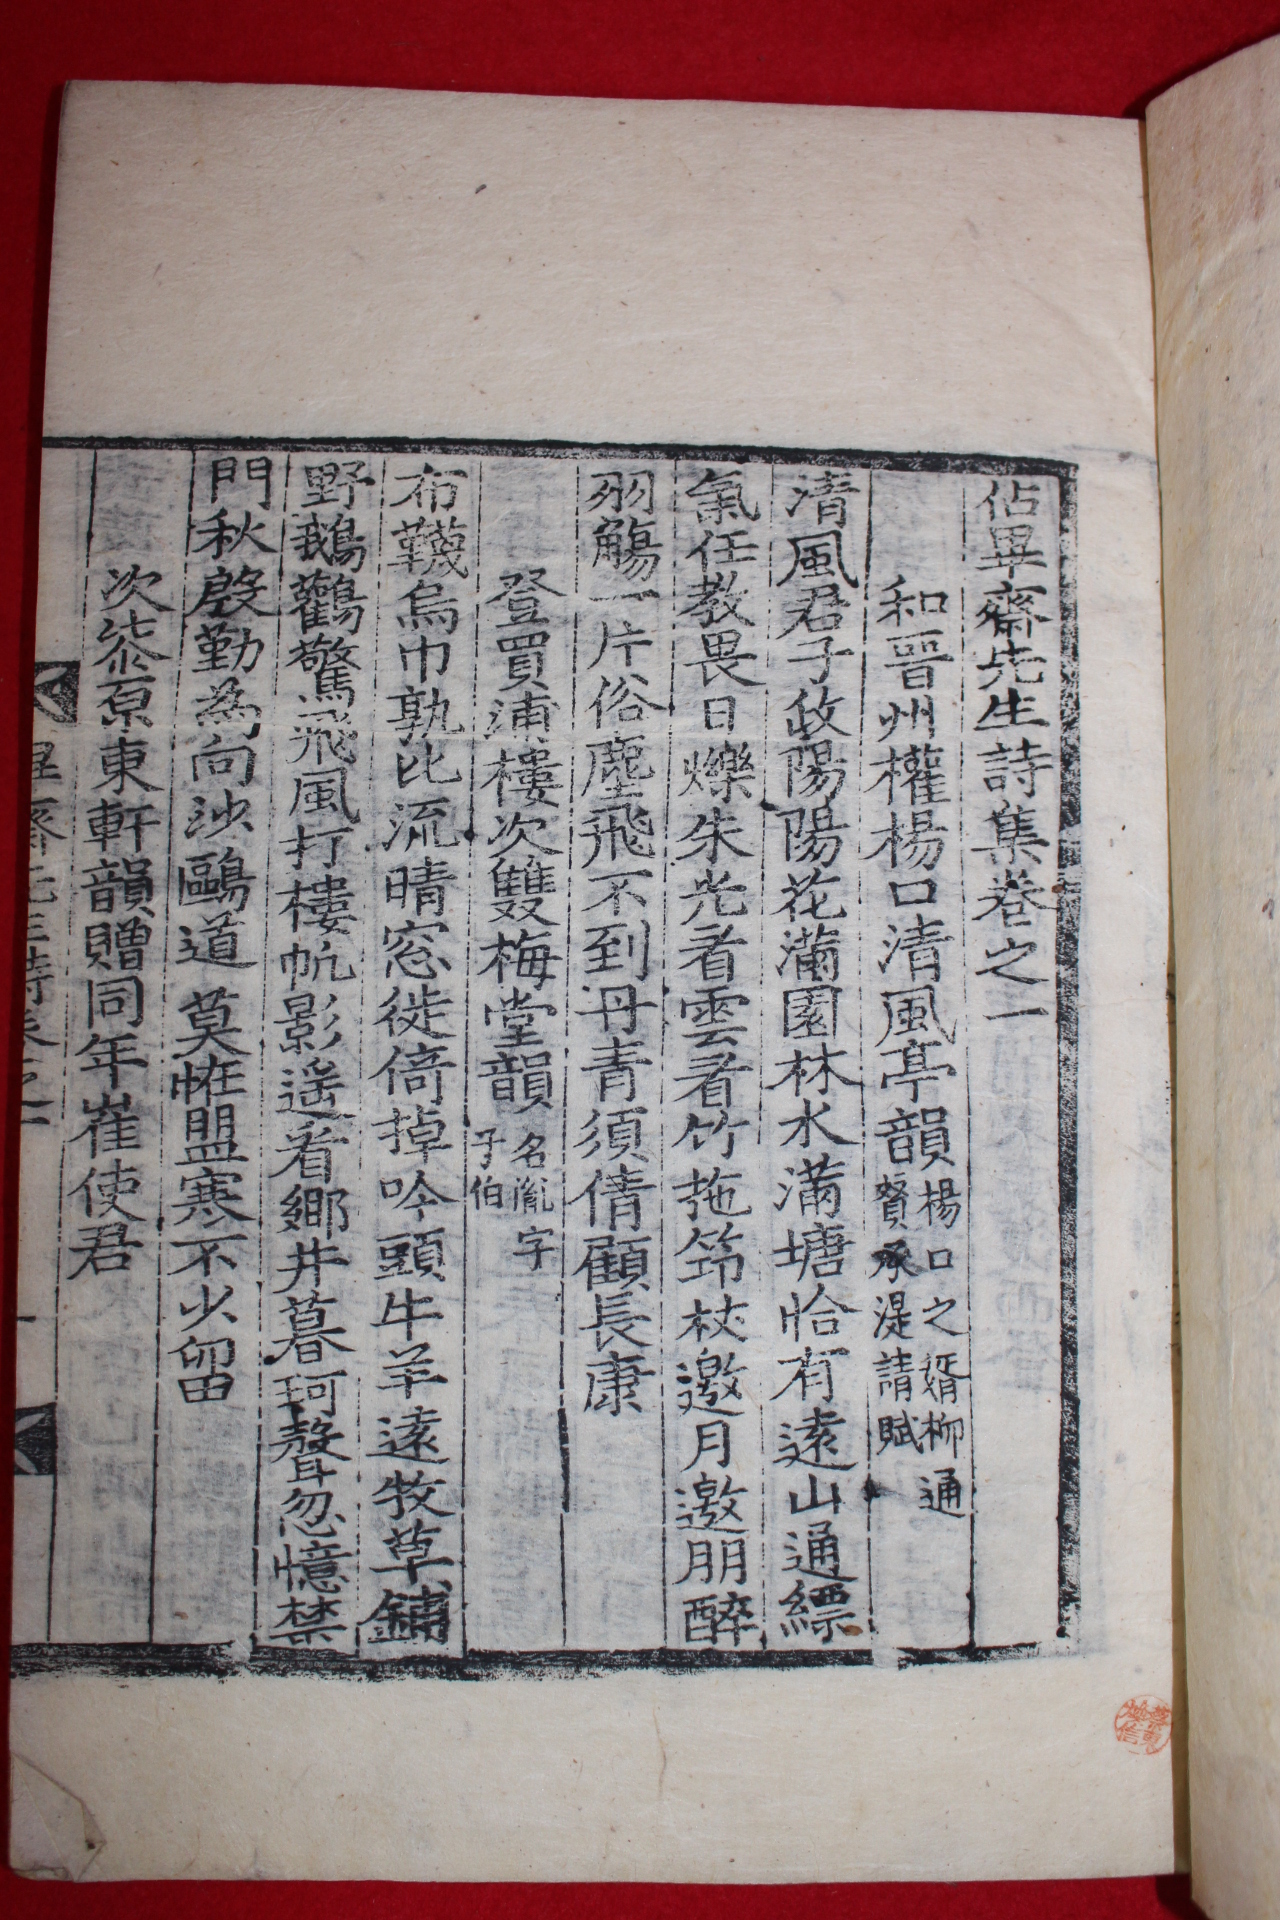 佔畢齋先生詩集卷之一
和晉州權楊口清風亭韻 楊口之壻柳通
賛承湜請賦
清風君子政陽陽花滿園林水滿塘恰有遠山通縹
氣任教畏日爍朱光看雲看竹拖筇杖邀月邀朋醉
羽觴一片俗塵飛不到丹青須倩顧長康
登買浦樓次雙梅堂韻 名胤字
子伯
布韈烏巾孰比流晴窓徙倚掉吟頭牛羊遠牧草鋪
野鵝鸛驚飛風打樓帆影遥看鄉井暮珂聲忽憶禁
門秋慇勤為向沙鷗道莫怪盟寒不少留
次柒原東軒韻贈同年崔使君
畢齋先生詩卷之一
一